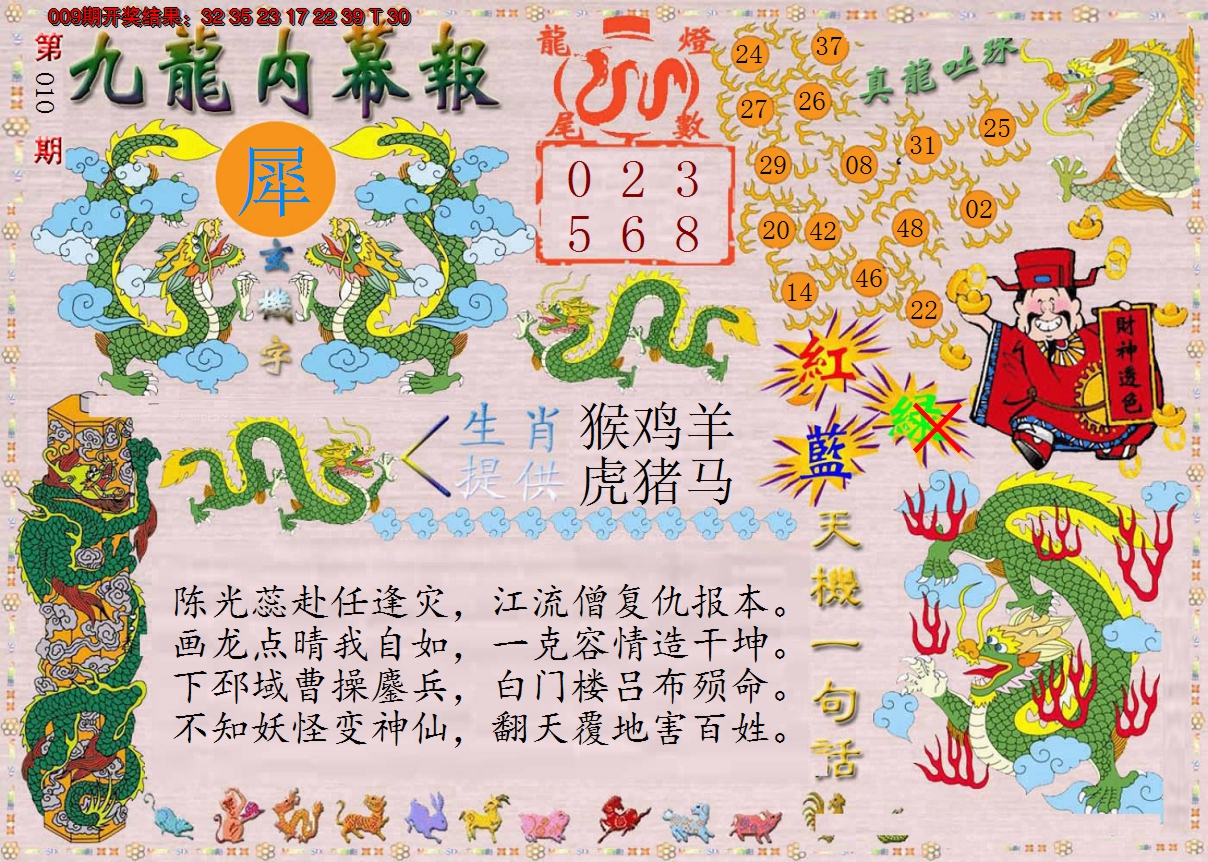 009期开奖结果：32 35 23 17 22 39 T 30
第010期
九龍内幕報
犀
玄機字
龍燈
尾數
0 2 3
5 6 8
真龍吐珠
24 37
27 26
25
31
29 08
02
20 42 48
46
14
22
紅
綠
藍
財神透色
生肖
提供
猴鸡羊
虎猪马
天機一句话
陈光蕊赴任逢灾，江流僧复仇报本。
画龙点睛我自如，一克容情造干坤。
下邳域曹操鏖兵，白门楼吕布殒命。
不知妖怪变神仙，翻天覆地害百姓。